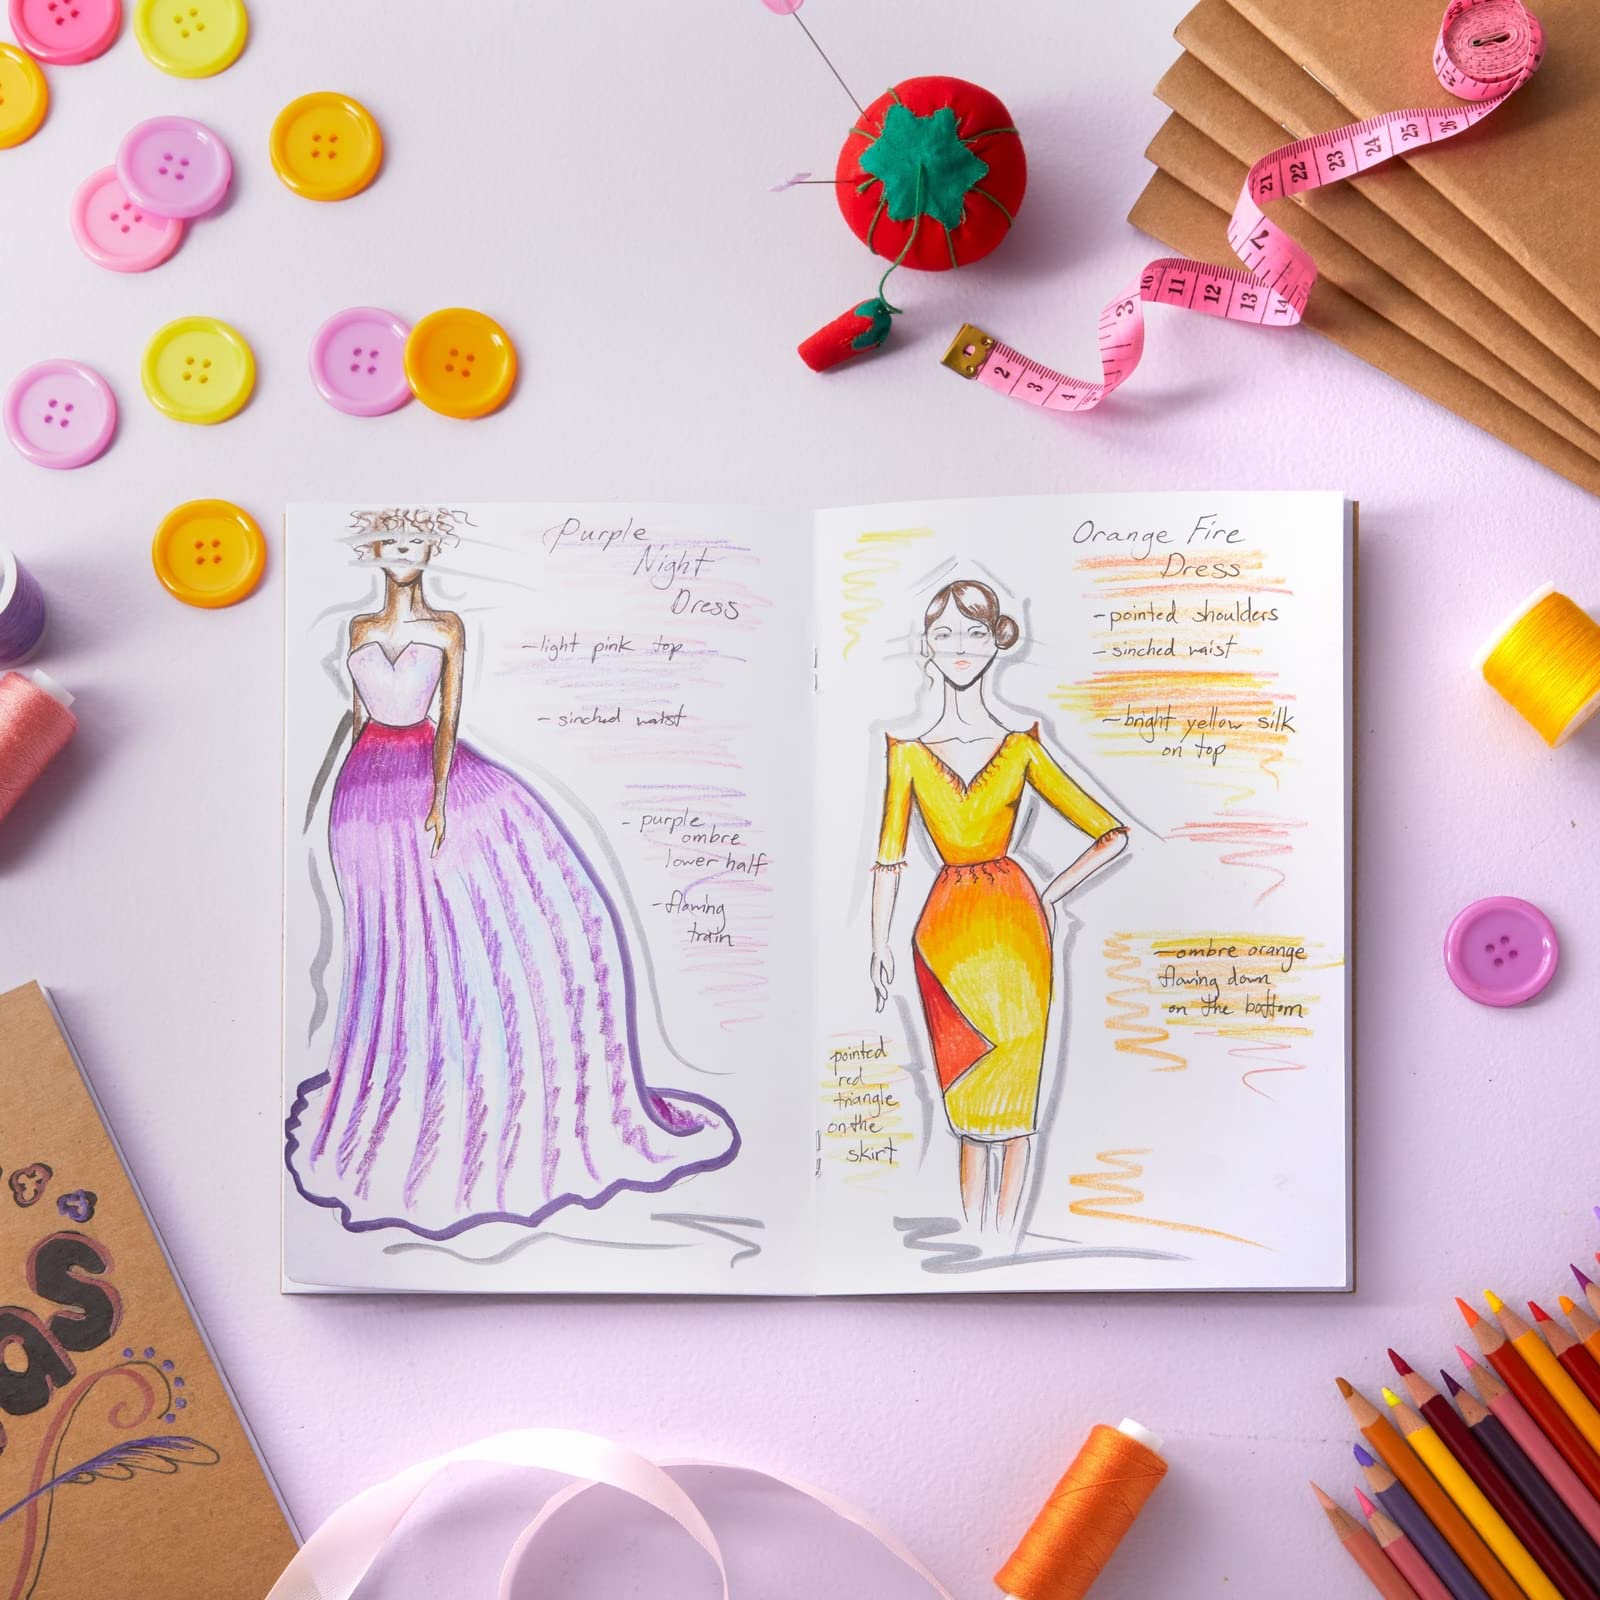 Purple
Night
Dress
-light pink top
- sinched waist
- purple
ombre
lower half
-flowing
train
Orange Fire
Dress
-pointed shoulders
- sinched waist
-bright yellow silk
on top
-ombre orange
flowing down
on the bottom
pointed
red
triangle
on the
skirt
as
2 3 4
3
10 11 12 13 14
2
21 22 23 24 25 26